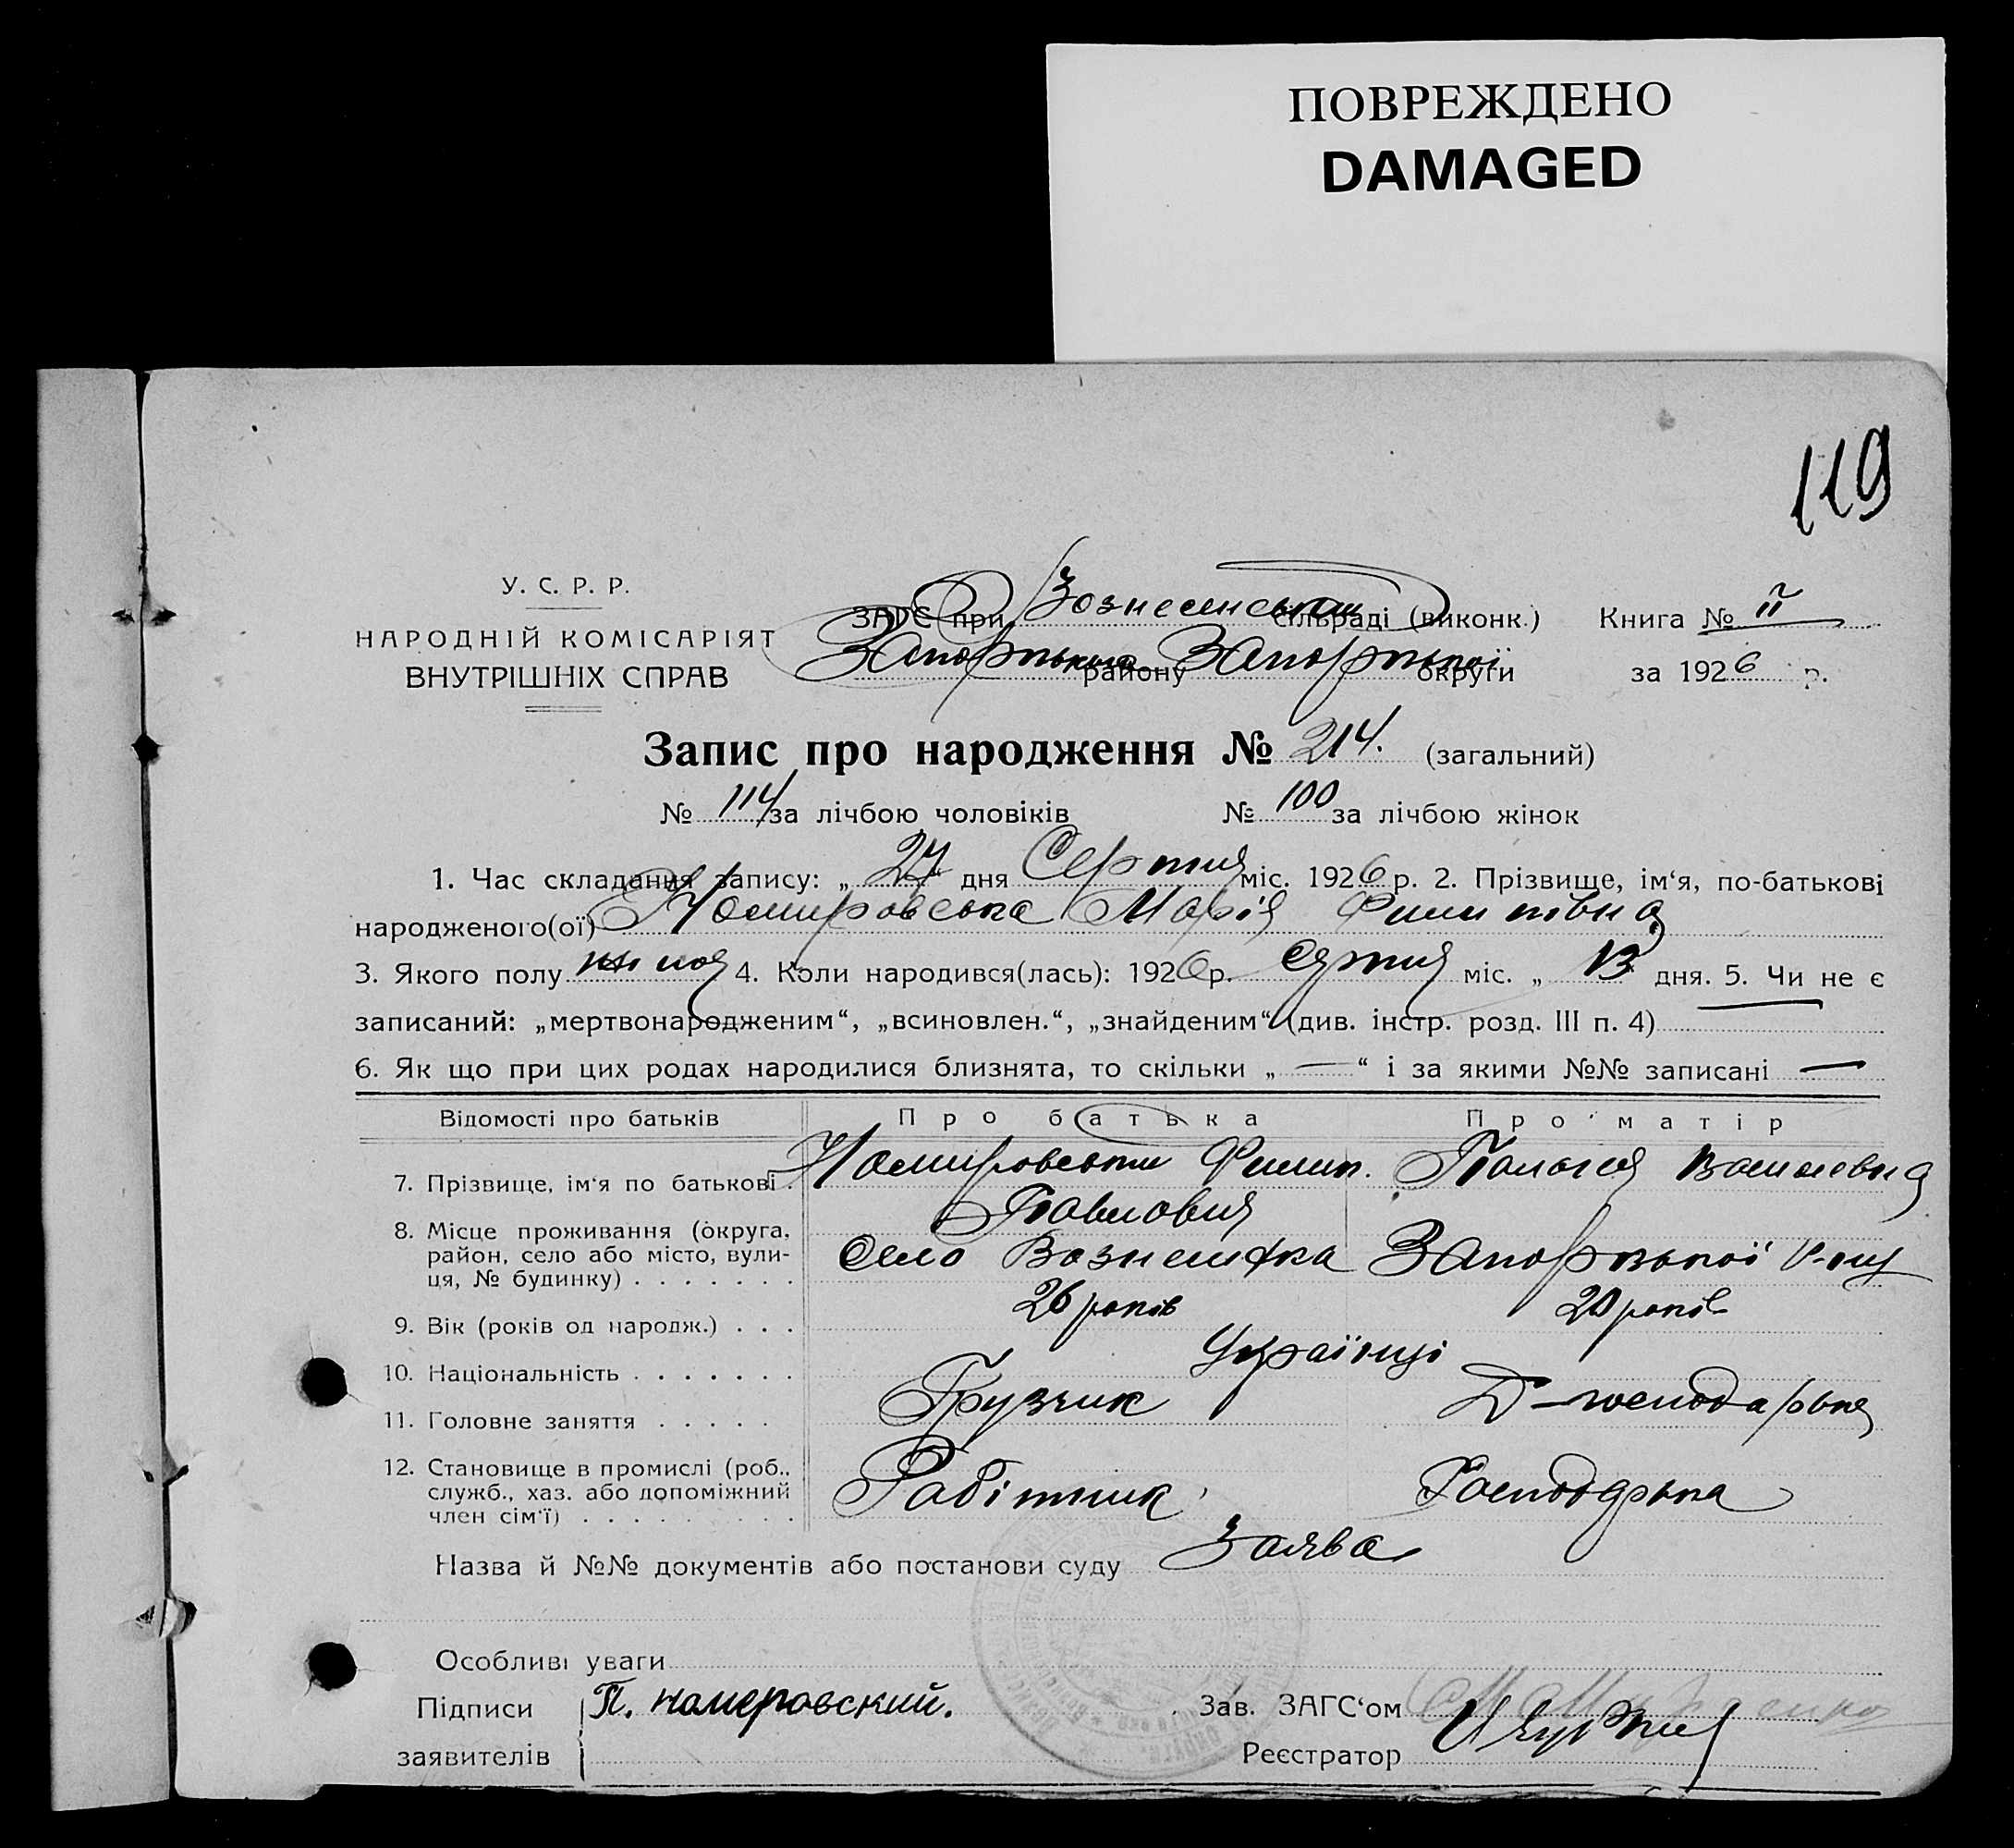 ПОВРЕЖДЕНО
DAMAGED
119
У. С. Р. Р.
НАРОДНІЙ КОМІСАРІЯТ
ВНУТРІШНІХ СПРАВ
ЗАГС при Вознесенськый сільраді (виконк.) Книга № II
району Запорізької округи за 1926 р.
Запис про народження № 214. (загальний)
№ 114 за лічбою чоловіків № 100 за лічбою жінок
1. Час складання запису: „ 27 дня Серпня міс. 1926 р. 2. Прізвище, ім‘я, по-батькові
народженого(ої) Марія Филипівна
3. Якого полу 4. Коли народився(лась): 1926 р. Серпня міс. „ 13 дня. 5. Чи не є
записаний: „мертвонародженим“, „всиновлен.“, „знайденим“ (див. інстр. розд. III п. 4) —
6. Як що при цих родах народилися близнята, то скільки „ — “ і за якими №№ записані —
Відомості про батьків Про батька Про матір
7. Прізвище, ім‘я по батькові . Филип. Василевна
Павлович
8. Місце проживання (округа,
район, село або місто, вули-
ця, № будинку) . . . . . . . село Вознесенка Запорізької
9. Вік (років од народж.) . . . 26 років 20 років
10. Національність . . . . . . . Українці
11. Головне заняття . . . . . Грузчик Д-господарька
12. Становище в промислі (роб.,
служб., хаз. або допоміжний
член сім‘ї) . . . . . . . . . Робітник Господарька
Назва й №№ документів або постанови суду Заява
Особливі уваги
Підписи П. Намеровский. Зав. ЗАГС‘ом
заявителів Реєстратор